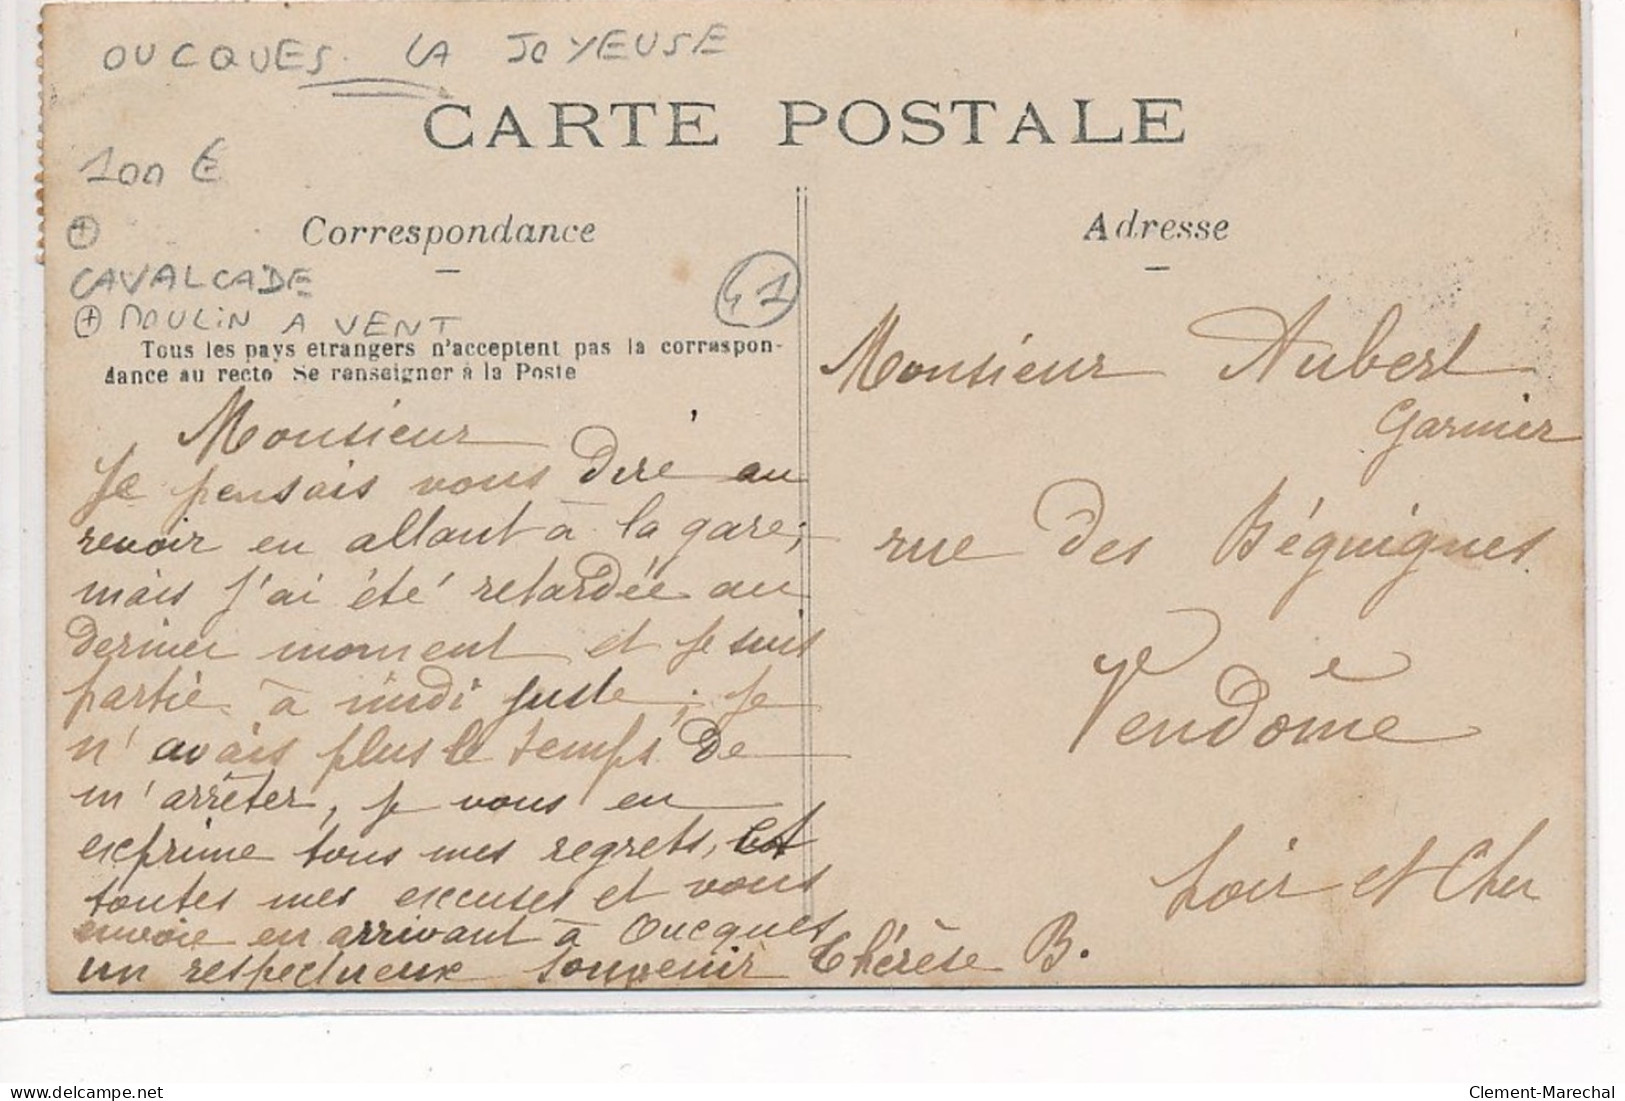 OUCQUES LA JOYEUSE
CARTE POSTALE
100 €
Correspondance
Adresse
+
CAVALCADE
41
+ MOULIN A VENT
Tous les pays etrangers n'acceptent pas la correspon-
dance au recto Se renseigner à la Poste
Monsieur
Je pensais vous dire au
revoir en allant à la gare,
mais j'ai été retardée au
dernier moment et je suis
partie à midi juste ; je
n'avais plus le temps de
m'arrêter, je vous en
exprime tous mes regrets, et
toutes mes excuses et vous
envoie en arrivant à Oucques
un respectueux souvenir Thérèse B.
Monsieur Aubert
Garnier
rue des Béguignes
Vendôme
Loir et Cher
delcampe.net
Clement-Marechal